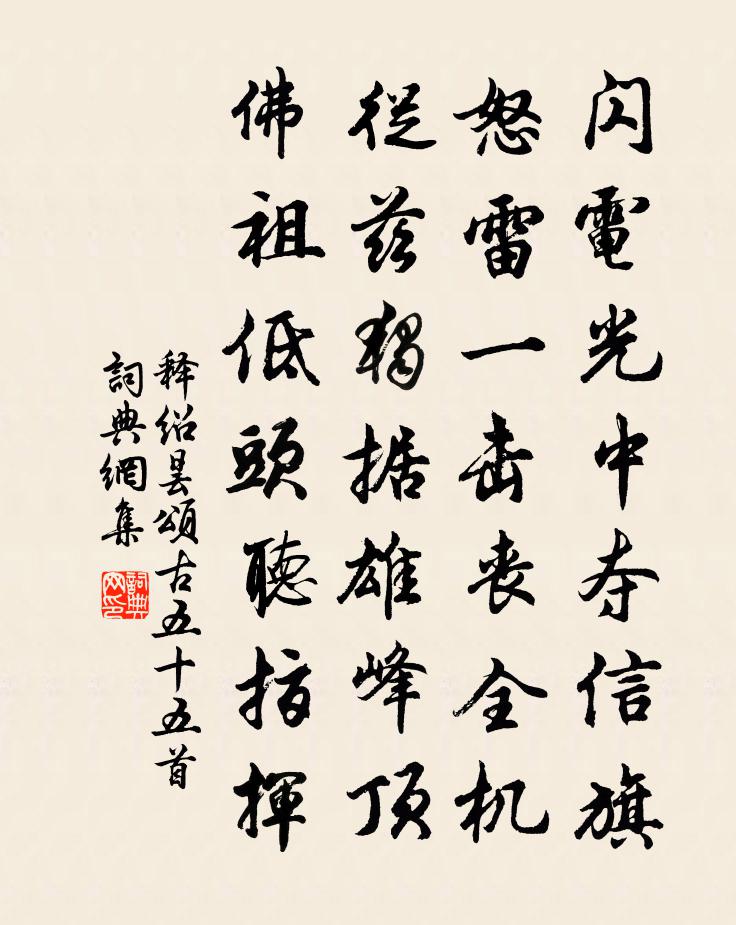 闪電光中夺信旗
怒雷一击丧全机
從兹獨据雄峰顶
佛祖低頭聽指揮
释绍昙頌古五十五首
詞典網集
詞典网印